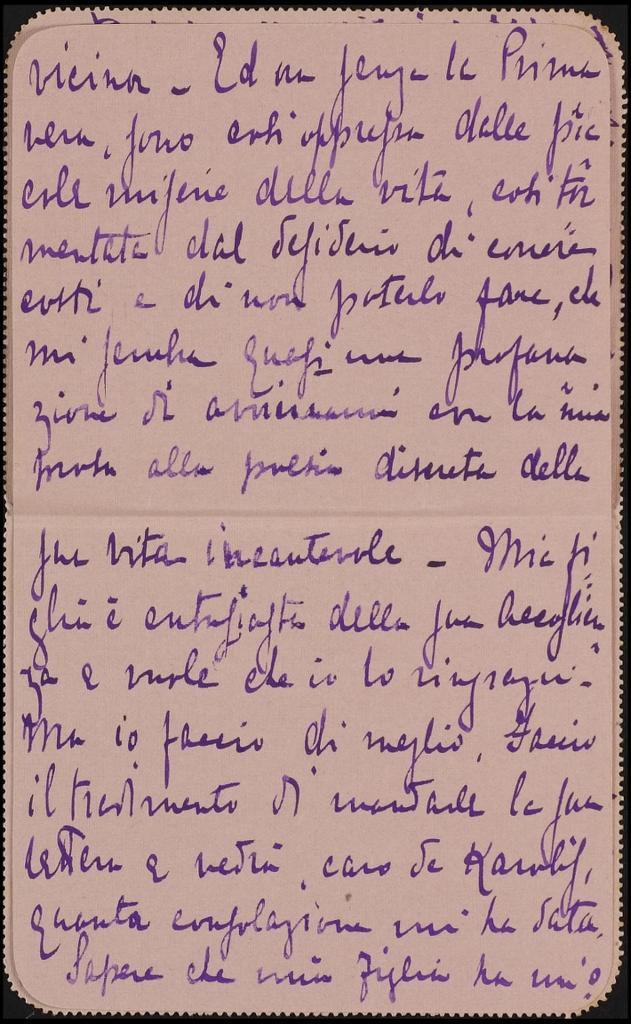 vicina - Ed ora senza la Prima
vera, sono così oppressa dalle pic
cole miserie della vita, così tor
mentata dal desiderio di correre
costì e di non poterlo fare, che
mi sembra quasi una profana
zione di avvicinarmi con la mia
prosa alla poesia discreta della
sua vita incantevole - Mia fi
glia è entusiasta della sua accoglien
za e vuole che io lo ringrazi -
Ma io faccio di meglio. Faccio
il tradimento di mandarle la sua
lettera e vedrà, caro de Karolis,
quanta consolazione mi ha data.
Sapere che mia figlia ha